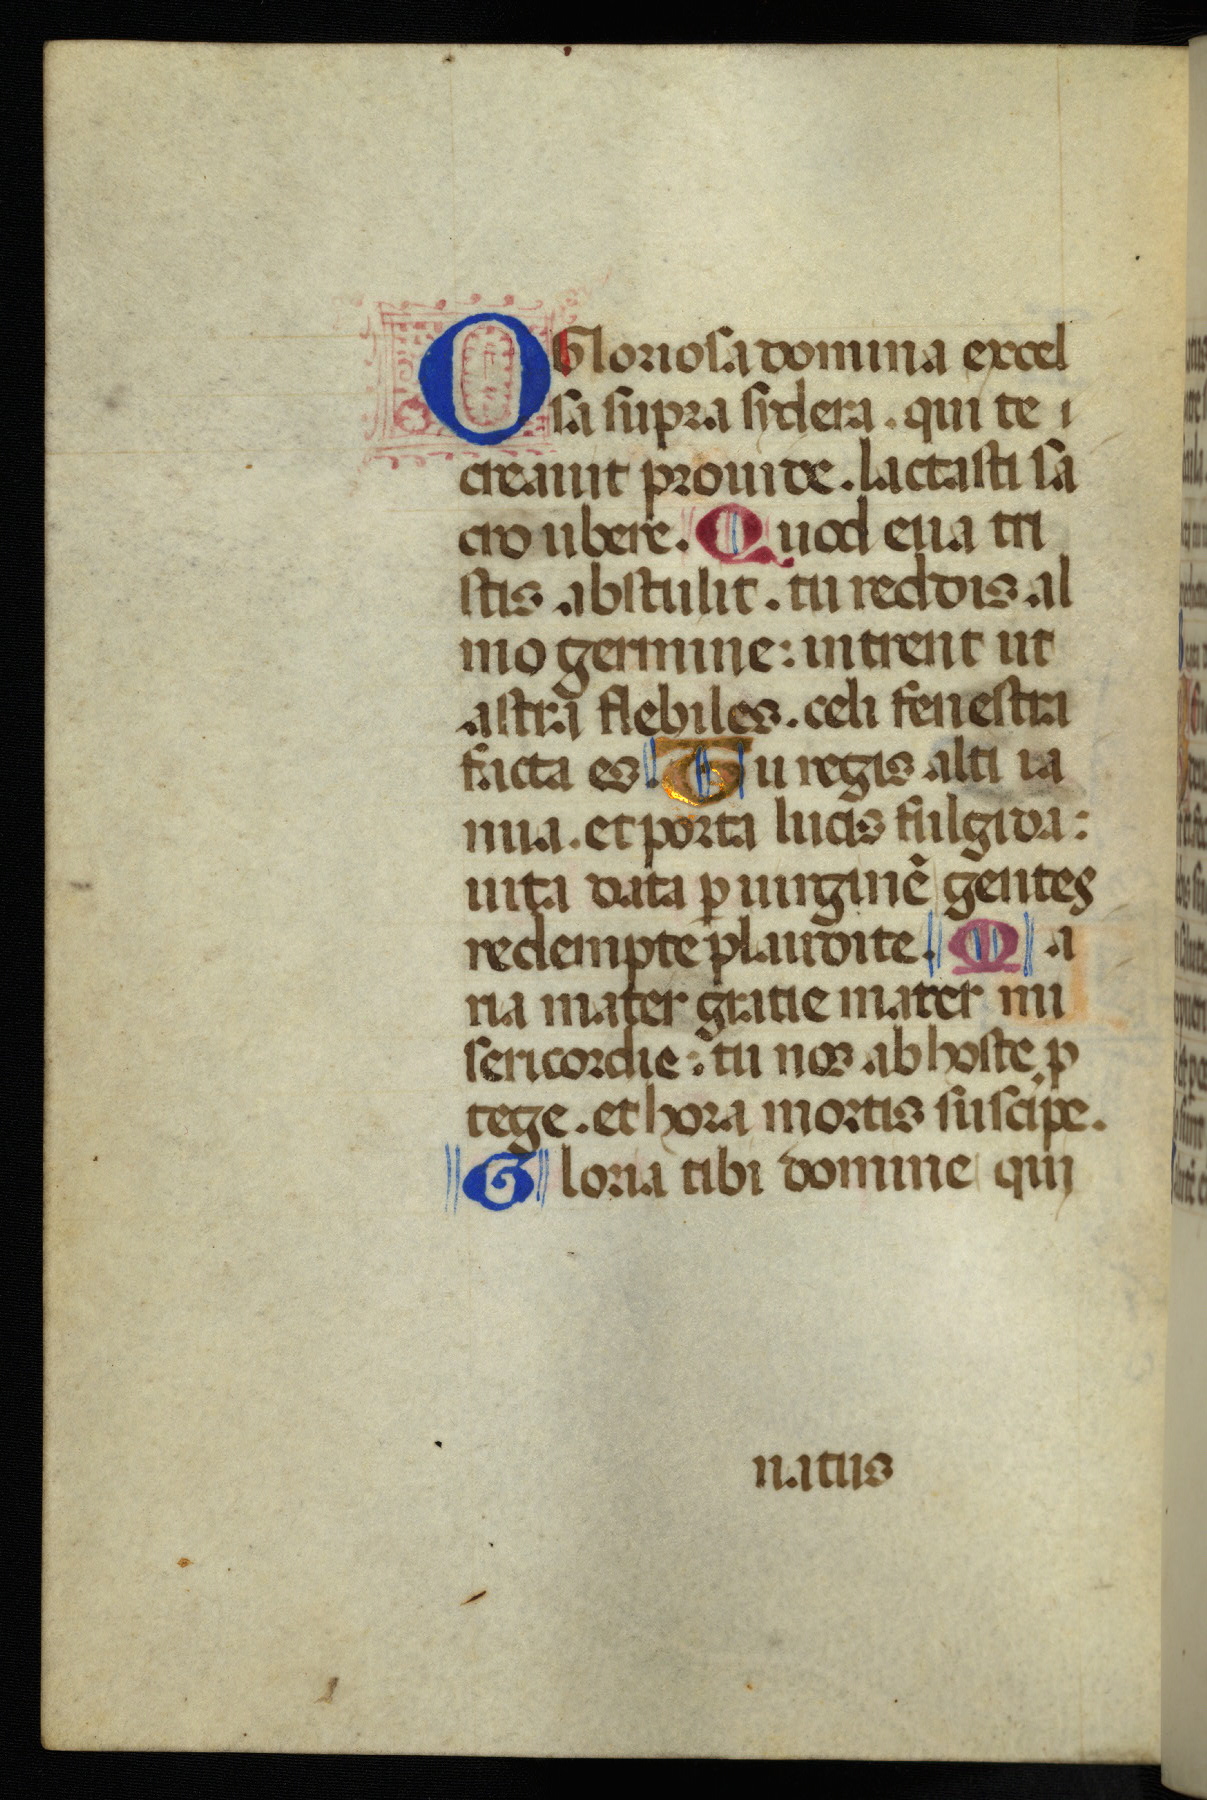 O Gloriosa domina excel
sa supra sydera . qui te i
creauit prouide . lactasti sa
cro ubere . Quod eua tri
stis abstulit . tu reddis al
mo germine : intrent ut
astra flebiles . celi fenestra
facta es . Tu regis alti ia
nua . et porta lucis fulgida :
uita data ꝑ uirginẽ gentes
redempte plaudite . Ma
ria mater gratie mater mi
sericordie : tu nos ab hoste p
tege . et hora mortis suscipe .
Gloria tibi domine qui
natus